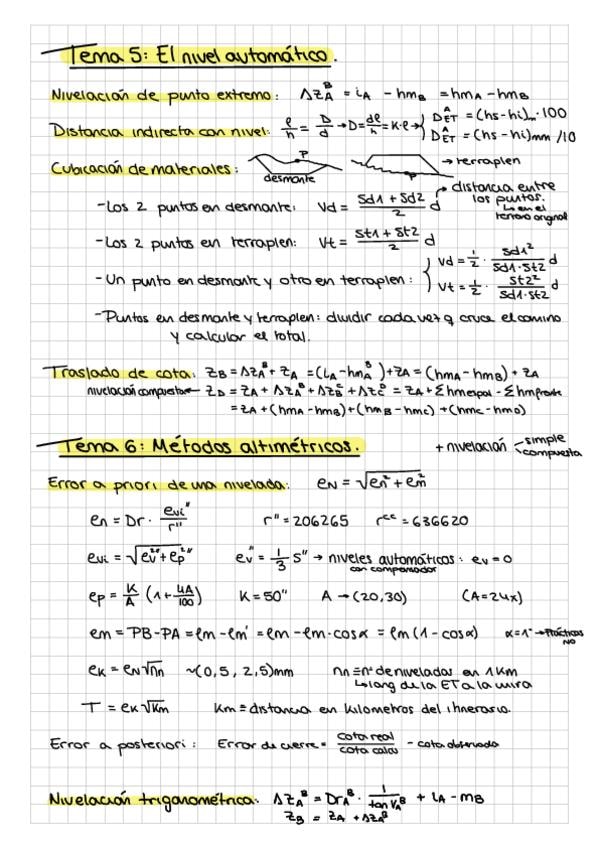 Tema 5: El nivel automático.
Nivelación de punto extremo: ΔZ_A^B = i_A - hm_B = hm_A - hm_B
Distancia indirecta con nivel: ℓ/h = D/d → D = dℓ/h = K·ℓ → D_ET^A = (hs - hi)_m · 100
D_ET^A = (hs - hi)mm /10
Cubicación de materiales: P desmonte P → terraplen
- Los 2 puntos en desmonte: Vd = (Sd1 + Sd2)/2 d → distancia entre los puntos. ↳ en el terreno original
- Los 2 puntos en terraplen: Vt = (St1 + St2)/2 d
- Un punto en desmonte y otro en terraplen: Vd = 1/2 · Sd1²/(Sd1·St2) d
Vt = 1/2 · St2²/(Sd1·St2) d
- Puntos en desmonte y terraplen: dividir cada vez q cruce el camino
y calcular el total.
Traslado de cota: Z_B = ΔZ_A^B + Z_A = (i_A - hm_A^B) + Z_A = (hm_A - hm_B) + Z_A
nivelación compuesta ← Z_D = Z_A + ΔZ_A^B + ΔZ_B^C + ΔZ_C^D = Z_A + Σhmespal - Σhmfrente
= Z_A + (hm_A - hm_B) + (hm_B - hm_C) + (hm_C - hm_D)
Tema 6: Métodos altimétricos. + nivelación simple
compuesta
Error a priori de una nivelada: e_N = √(en² + em²)
en = Dr · evi"/r" r" = 206265 r^cc = 636620
evi = √(ev²" + ep²") ev" = 1/3 s" → niveles automáticos: ev = 0
con compensador
ep = K/A (1 + 4A/100) K = 50" A → (20,30) (A = 24x)
em = PB - PA = ℓm - ℓm' = ℓm - ℓm·cosα = ℓm (1 - cosα) α = 1° → Prácticas NO
ek = e_N √nn ~(0,5 , 2,5)mm nn ≡ nº de niveladas en 1Km
↳ long de la ET a la mira
T = ek √Km Km ≡ distancia en kilometros del itinerario.
Error a posteriori: Error de cierre = cota real / cota calcu - cota observada
Nivelación trigonométrica: ΔZ_A^B = Dr_A^B · 1/tan V_A^B + i_A - m_B
Z_B = Z_A + ΔZ_A^B